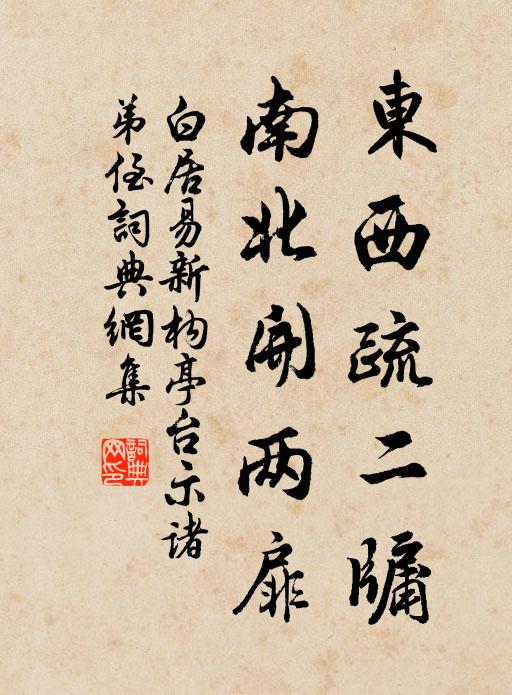 東西疏二牖
南北開兩扉
白居易新构亭台示諸
弟侄詞典網集
詞典网印